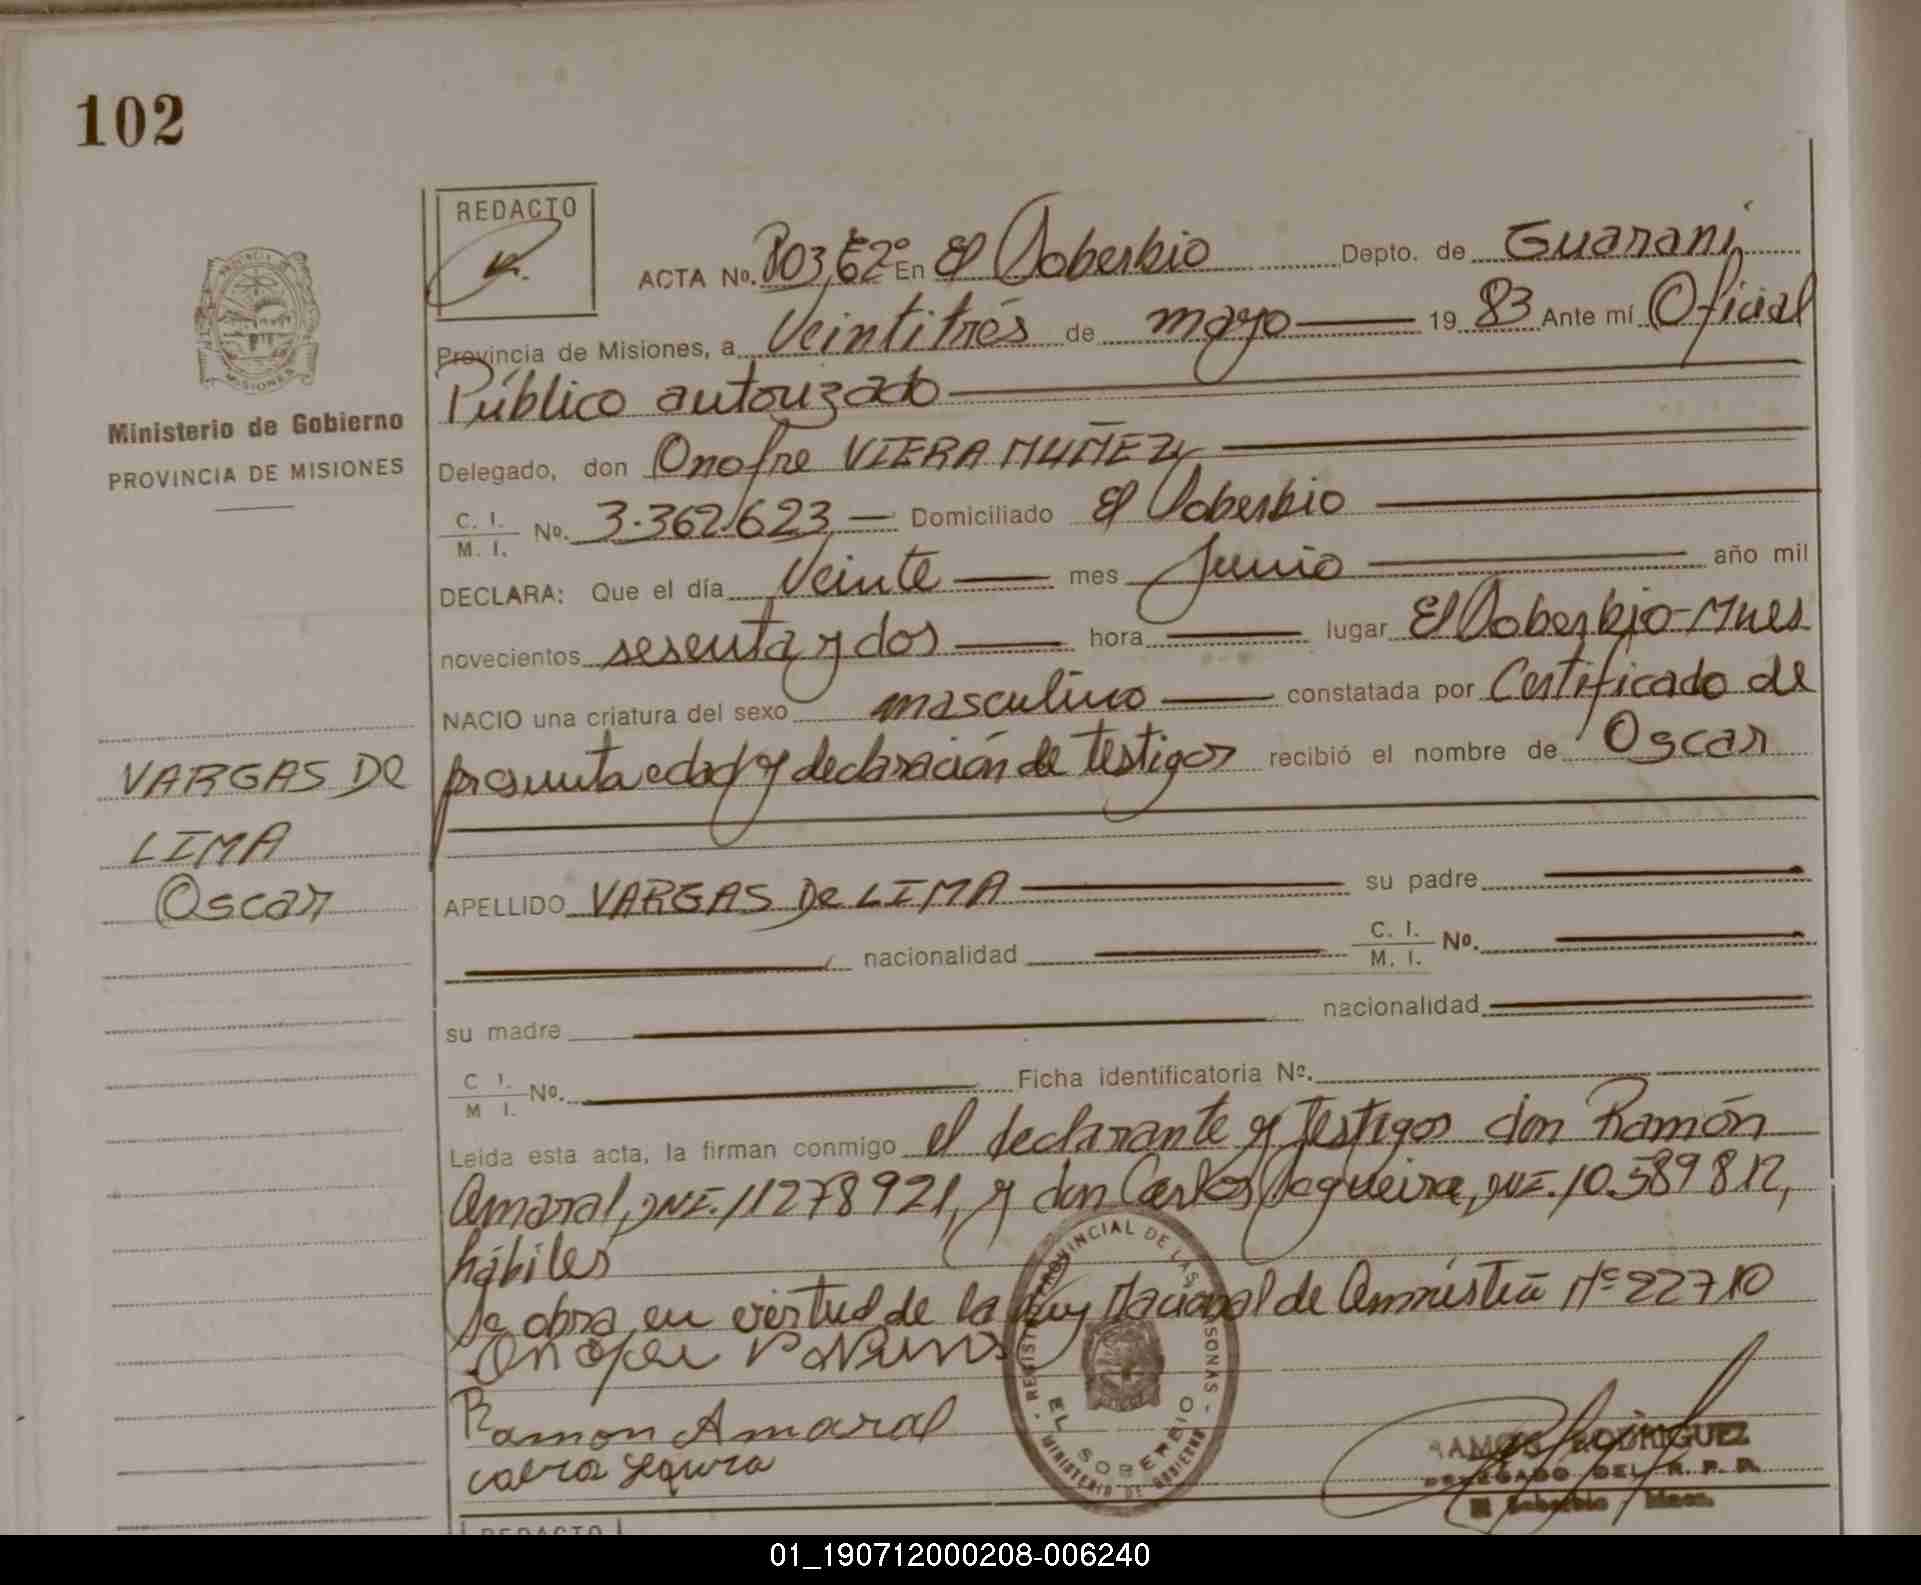 102
REDACTO
ACTA No. En El Soberbio Depto. de Guaraní
Provincia de Misiones, a Veintitrés de mayo 19 83 Ante mí Oficial
Público autorizado
Ministerio de Gobierno
PROVINCIA DE MISIONES
Delegado, don Onofre VIERA MUÑEZ
C. I.
M. I. No. 3.362.623 Domiciliado El Soberbio
DECLARA: Que el día Veinte mes Junio año mil
novecientos sesenta y dos hora lugar El Soberbio-Mnes
NACIO una criatura del sexo masculino constatada por Certificado de
presunta edad y declaración de testigos recibió el nombre de Oscar
VARGAS De
LIMA
Oscar
APELLIDO VARGAS De LIMA su padre
nacionalidad C. I.
M. I. No.
su madre nacionalidad
C I.
M I. No. Ficha identificatoria Nº.
Leída esta acta, la firman conmigo el declarante y testigos don Ramón
Amaral, DNI. 11278921, y don Carlos Segueira, DNI. 10.589812,
hábiles
Se obra en virtud de la Ley Nacional de Amnistía Nº 22710
Onofre
Ramon Amaral
REGISTRO PROVINCIAL DE LAS PERSONAS
EL SOBERBIO
MINISTERIO DE GOBIERNO
RAMOS RODRIGUEZ
DELEGADO DEL R. P. P.
El Soberbio Mnes.
REDACTO
01_190712000208-006240